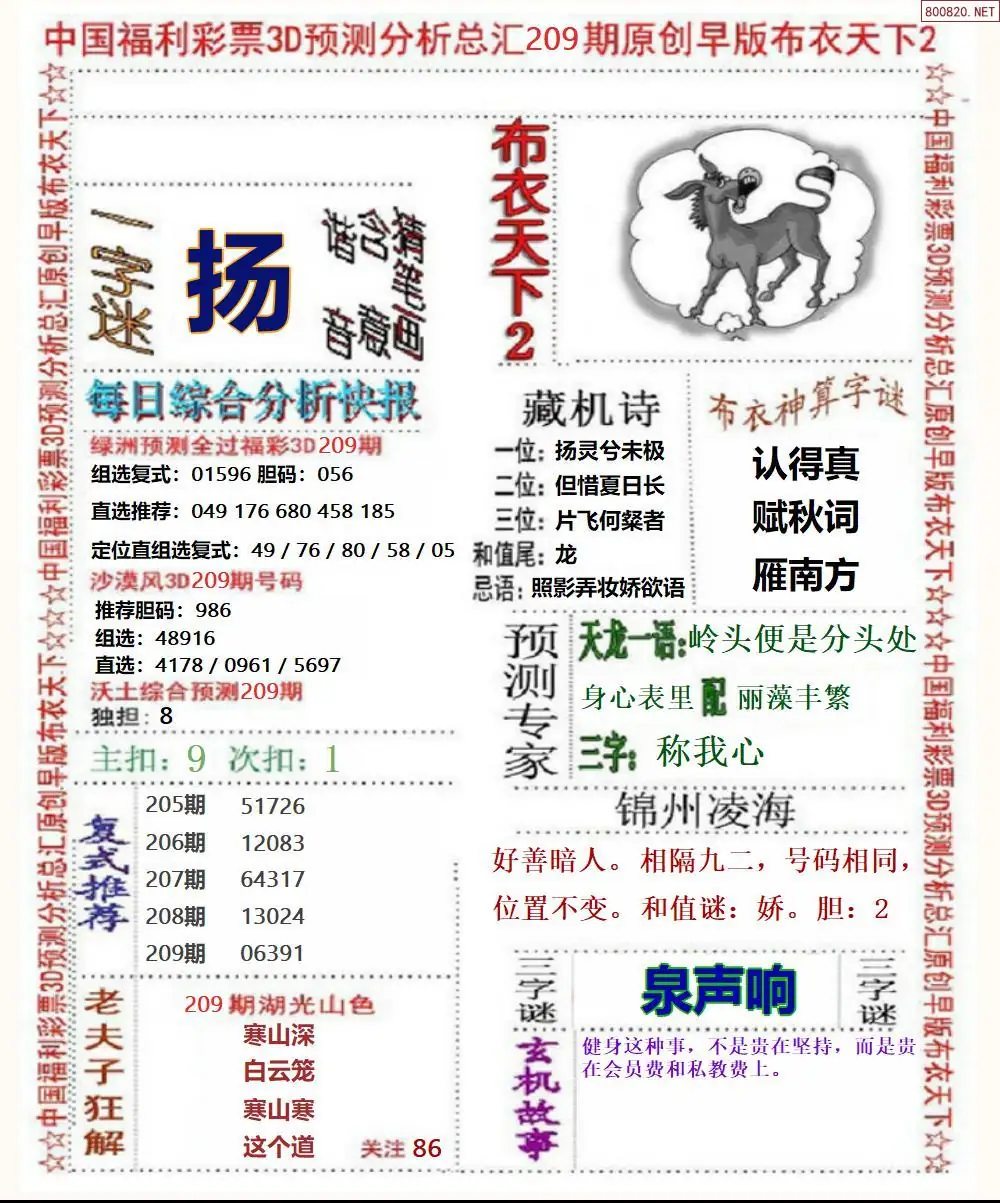 800820.NET
中国福利彩票3D预测分析总汇209期原创早版布衣天下2
☆☆中国福利彩票3D预测分析总汇原创早版布衣天下☆☆☆☆中国福利彩票3D预测分析总汇原创早版布衣天下☆☆
一字迷
扬
猜笔画
含意
谐音
布衣天下2
每日综合分析快报
绿洲预测全过福彩3D209期
组选复式：01596 胆码：056
直选推荐：049 176 680 458 185
定位直组选复式：49 / 76 / 80 / 58 / 05
沙漠风3D209期号码
推荐胆码：986
组选：48916
直选：4178 / 0961 / 5697
沃土综合预测209期
独担：8
主扣：9 次扣：1
复式推荐
205期 51726
206期 12083
207期 64317
208期 13024
209期 06391
老夫子狂解
209期湖光山色
寒山深
白云笼
寒山寒
这个道 关注 86
藏机诗
一位：扬灵兮未极
二位：但惜夏日长
三位：片飞何粲者
和值尾：龙
忌语：照影弄妆娇欲语
布衣神算字谜
认得真
赋秋词
雁南方
预测专家
天龙一语：岭头便是分头处
身心表里 配 丽藻丰繁
三字：称我心
锦州凌海
好善暗人。相隔九二，号码相同，
位置不变。和值谜：娇。胆：2
三字谜
泉声响
三字谜
玄机故事
健身这种事，不是贵在坚持，而是贵
在会员费和私教费上。
☆☆中国福利彩票3D预测分析总汇原创早版布衣天下☆☆☆☆中国福利彩票3D预测分析总汇原创早版布衣天下☆☆